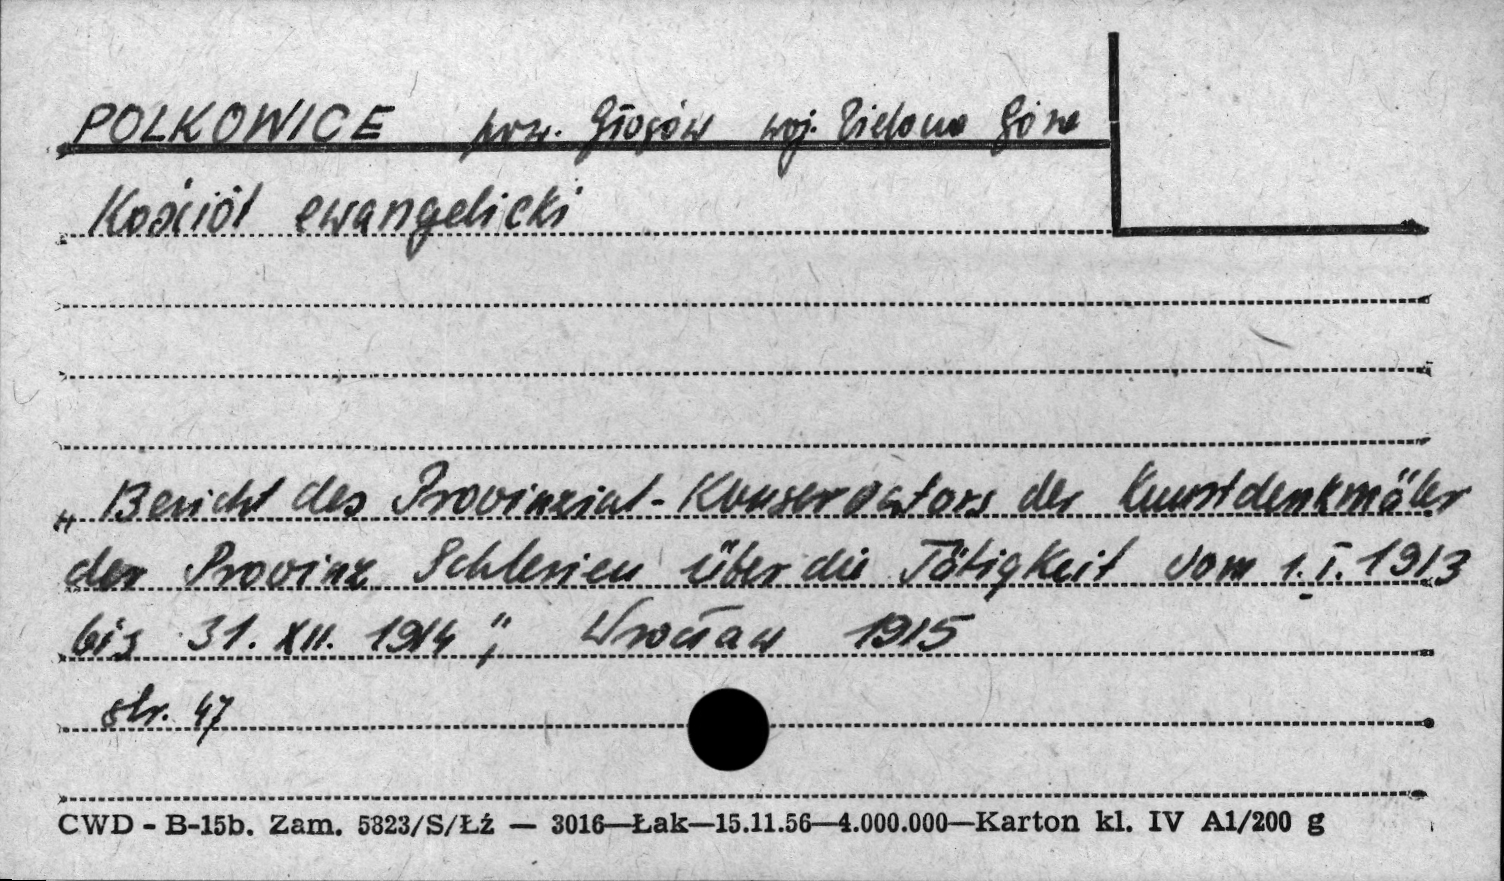 POLKOWICE pow. Głogów woj. Zielona Góra
Kościół ewangelicki
„Bericht des Provinzial-Konservators der Kunstdenkmäler
der Provinz Schlesien über die Tätigkeit vom 1.I.1913
bis 31.XII.1914", Wrocław 1915
str. 47
CWD - B-15b. Zam. 5823/S/Łż — 3016—Łak—15.11.56—4.000.000—Karton kl. IV A1/200 g